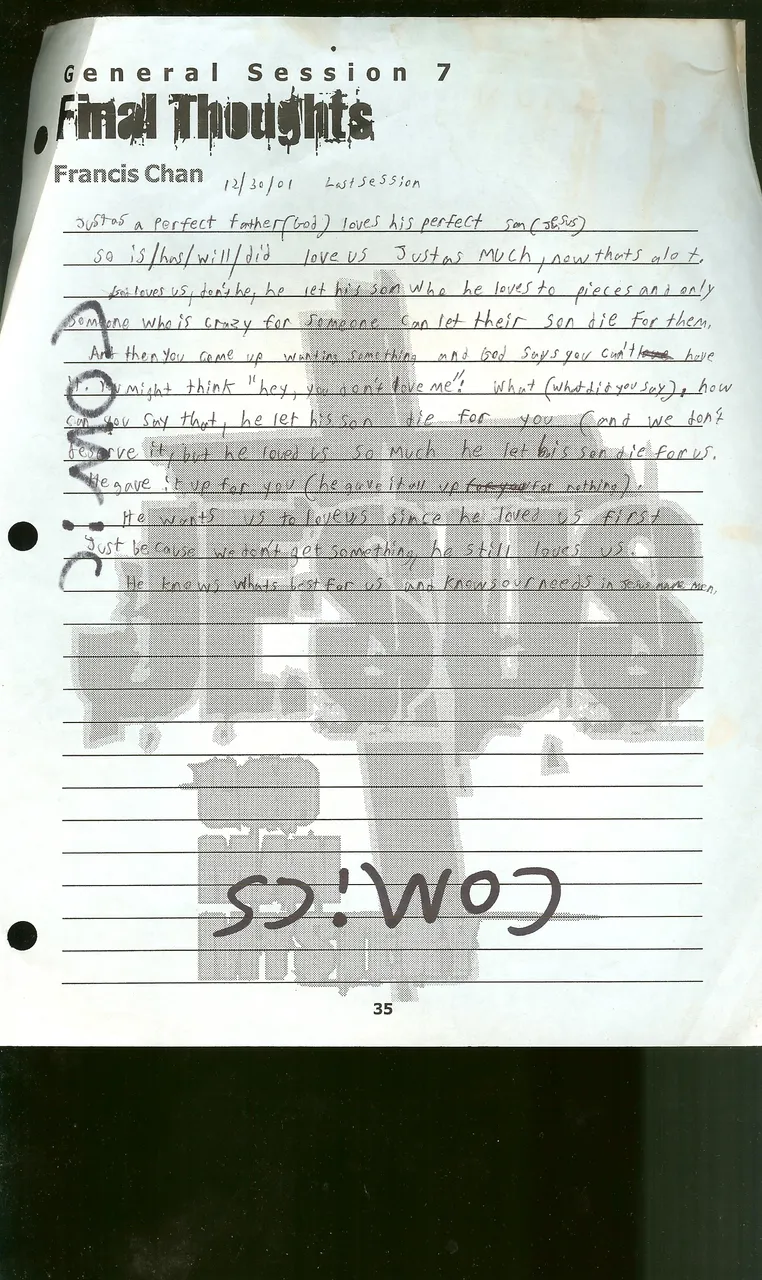 General Session 7
Final Thoughts
Francis Chan 12/30/01 Last session
Just as a Perfect father (God) loves his perfect son (Jesus)
so is/has/will/did love us Just as MUCH, now thats alot.
loves us, don't he, he let his son who he loves to pieces and only
someone who is crazy for someone can let their son die for them.
And then you come up wanting something and God says you can't love have
it. You might think "hey, you don't love me"! What (what did you say), how
can you say that, he let his son die for you (and we don't
deserve it, but he loved us so much he let his son die for us.
He gave it up for you (he gave it all up for you for nothing).
He wants us to love us since he loved us first
Just because we don't get something, he still loves us.
He knows whats best for us and knows our needs in Jesus name men,
COM!C
JESUS
COM!CS
35